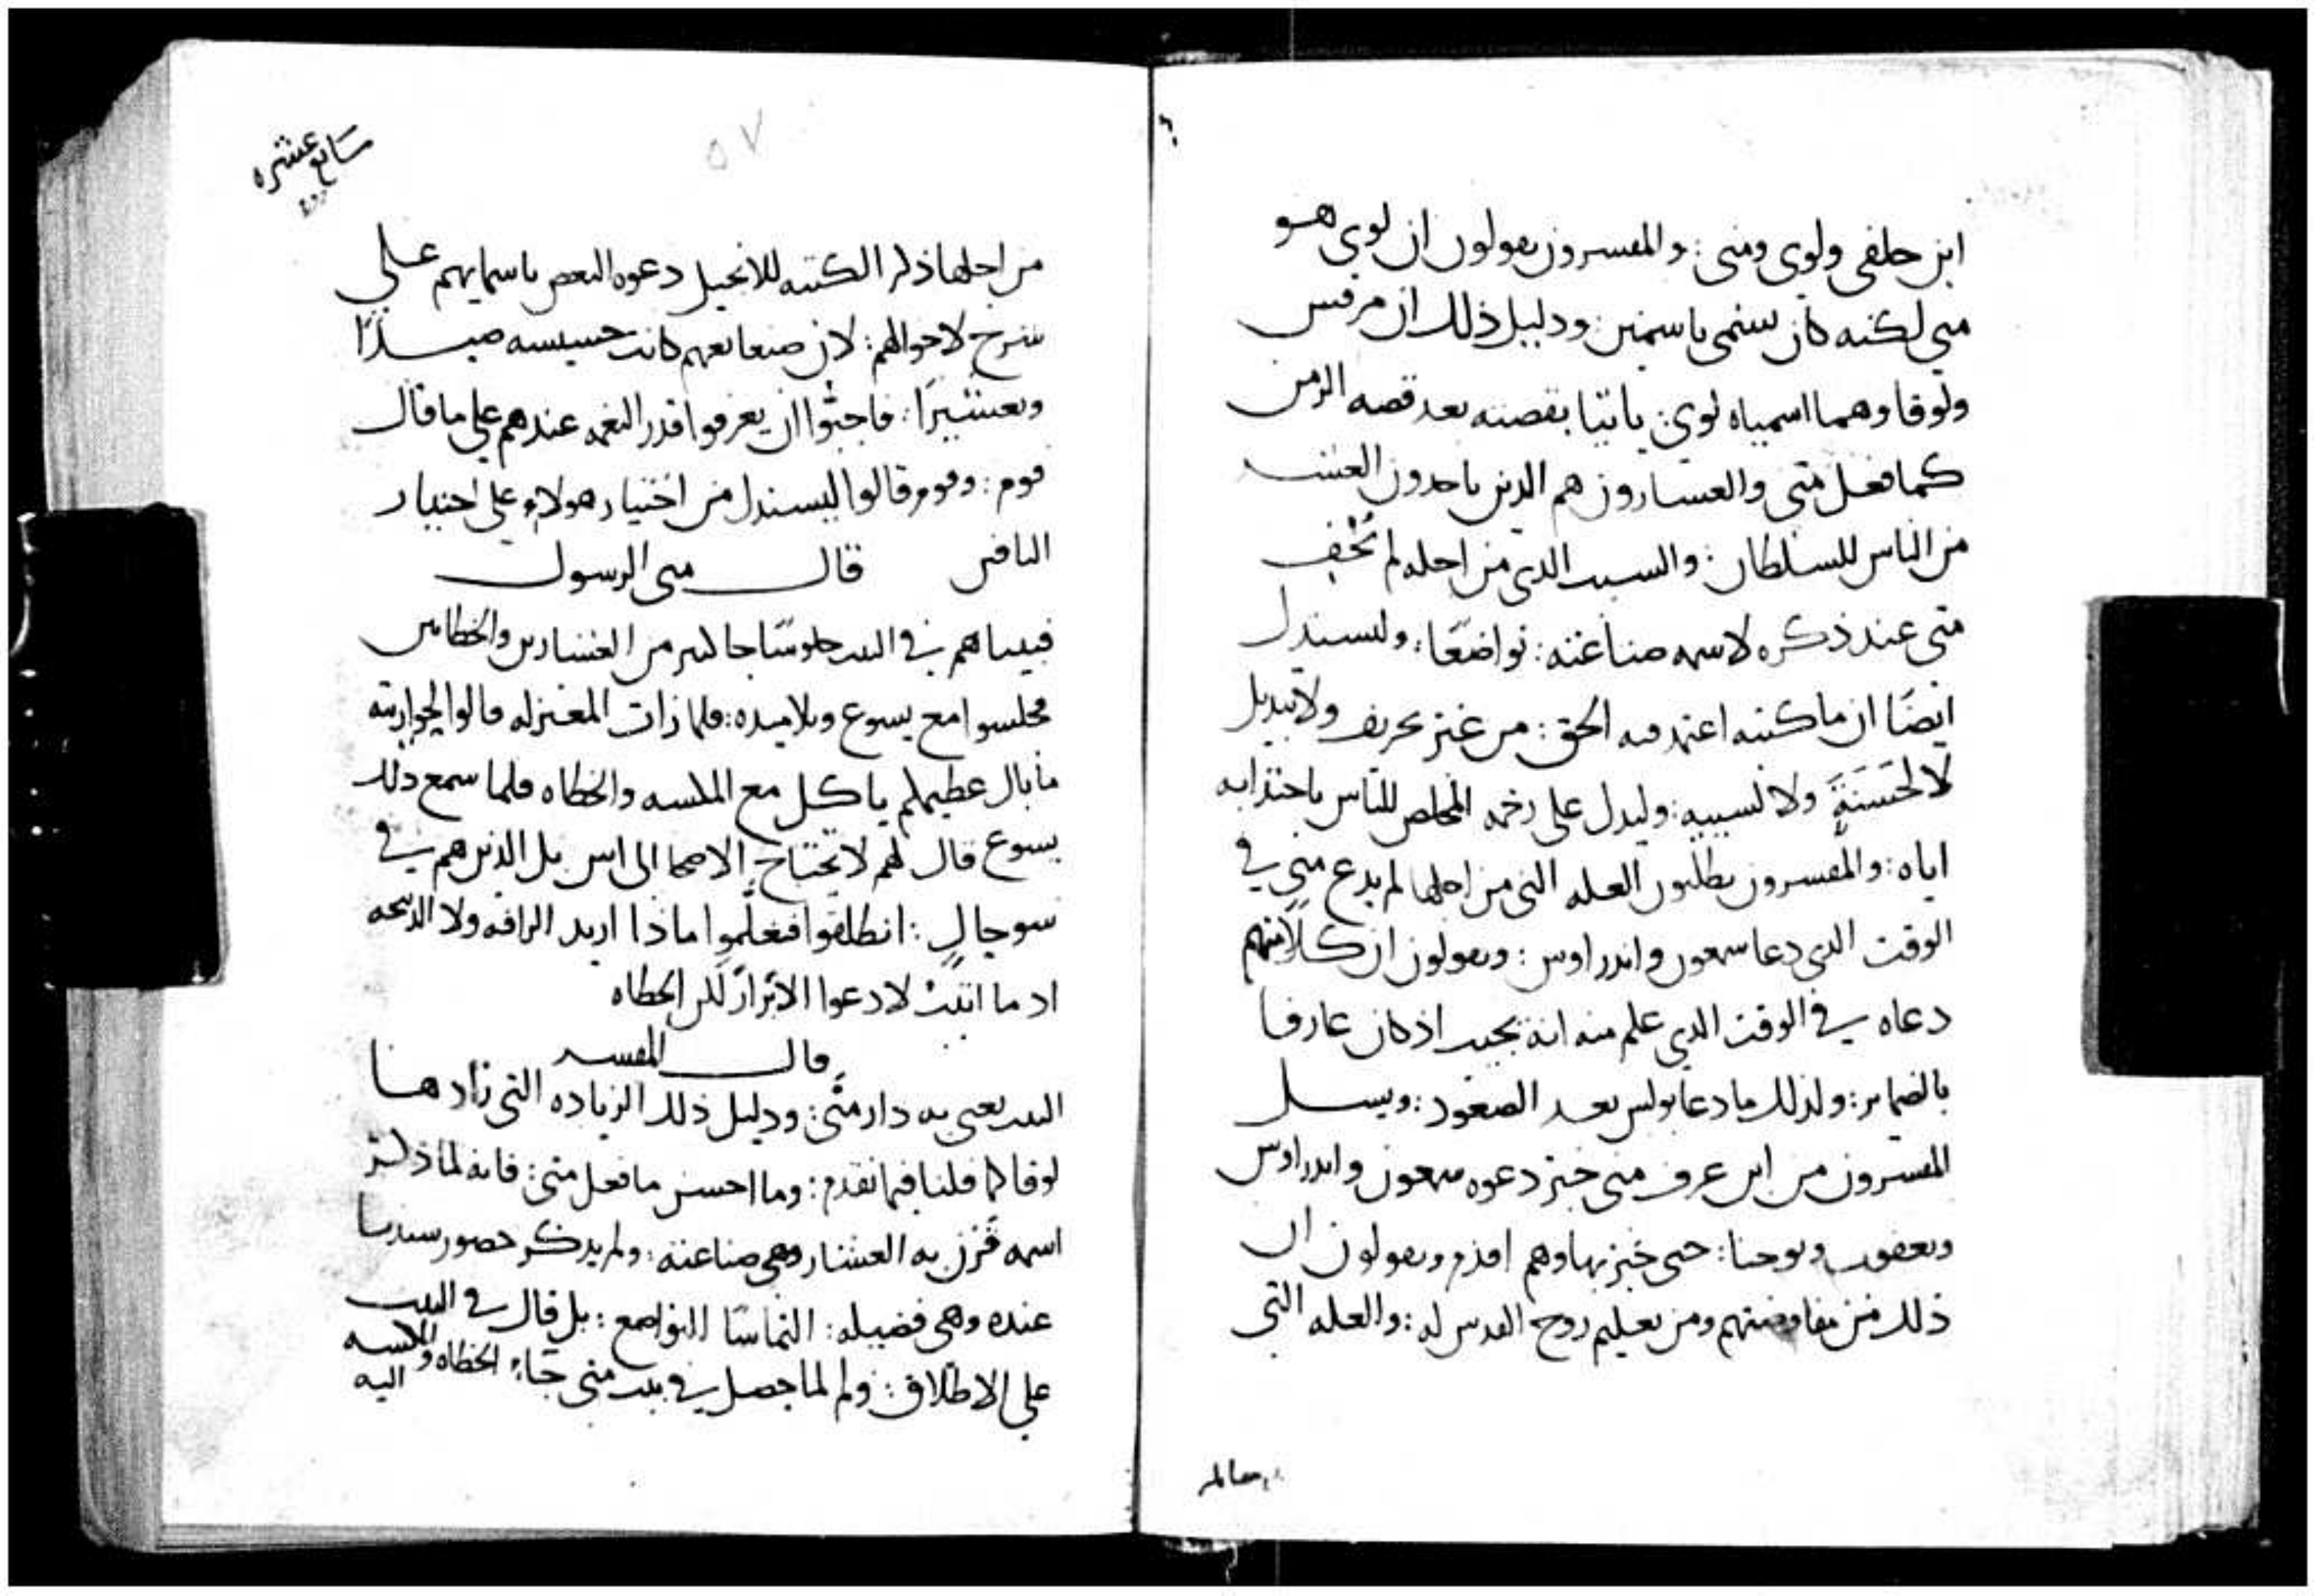 ابن حلفى ولوى ومتى : والمفسرون يقولون ان لوى هو
متى لكنه كان يسمى باسمين : ودليل ذلك ان مرقس
ولوقا وهما اسمياه لوى : ياتيا بقصته بعد قصه الزمن
كما فعل متى والعشارون هم الذين ياخذون العشر
من الناس للسلطان : والسبب الذى من اجله لم تخف
متى عند ذكره لاسمه صناعته : تواضعًا : وليستدل
ايضًا ان ما كتبه اعتمد فيه الحق : من غير تحريف ولا تبديل
لا لحسنةٍ ولا لسييه : وليدل على رحمه المخلص للناس باجتذابه
اياه : والمفسرون يطلبون العله التى من اجلها لم يدع متى في
الوقت الذى دعا سمعون واندراوس : ويقولون ان كلا منهم
دعاه في الوقت الذى علم منه انه يجيب اذ كان عارفا
بالضماير : ولذلك ما دعا بولس بعد الصعود : ويسل
المفسرون من اين عرف متى خبر دعوه سمعون واندراوس
ويعقوب ويوحنا : حتى خبر بها وهم اقدم ويقولون ان
ذلك من مفاوضتهم ومن تعليم روح القدس له : والعله التى
سابع عشره
٥٧
من اجلها ذكر الكتبه للانجيل دعوه البعض باسمايهم على
شرح لاحوالهم : لان صنعايعهم كانت خسيسه صيدًا
وتعشيرًا : فاحبوا ان يعرفوا قدر النعمه عندهم على ما قال
قوم : وقوم قالوا ليستدل من اختيار هولاء على اختيار
الباقين قال متى الرسول
فبينا هم في البيت جلوسًا جا كثير من العشارين والخطاين
فجلسوا مع يسوع وتلاميذه : فلما رات المعتزله قالوا لحواريته
ما بال عظيمكم ياكل مع المكسه والخطاه فلما سمع ذلك
يسوع قال لهم لا تحتاج الاصحا الى اس بل الذين هم في
سو حالٍ : انطلقوا فتعلموا ماذا اريد الرافه ولا الذبيحه
اذ ما اتيت لادعوا الابرار لكن الخطاه
قال المفسر
البيت يعنى به دار متى : ودليل ذلك الزياده التى زادها
لوقا كما قلنا فيما تقدم : وما احسن ما فعل متى : فانه لما ذكر
اسمه قرن به العشار وهى صناعته : ولم يذكر حضور سيدنا
عنده وهى فضيله : التماسًا التواضع : بل قال في البيت
على الاطلاق : ولم لما حصل في بيت متى جاء الخطاه والمكسه
اليه